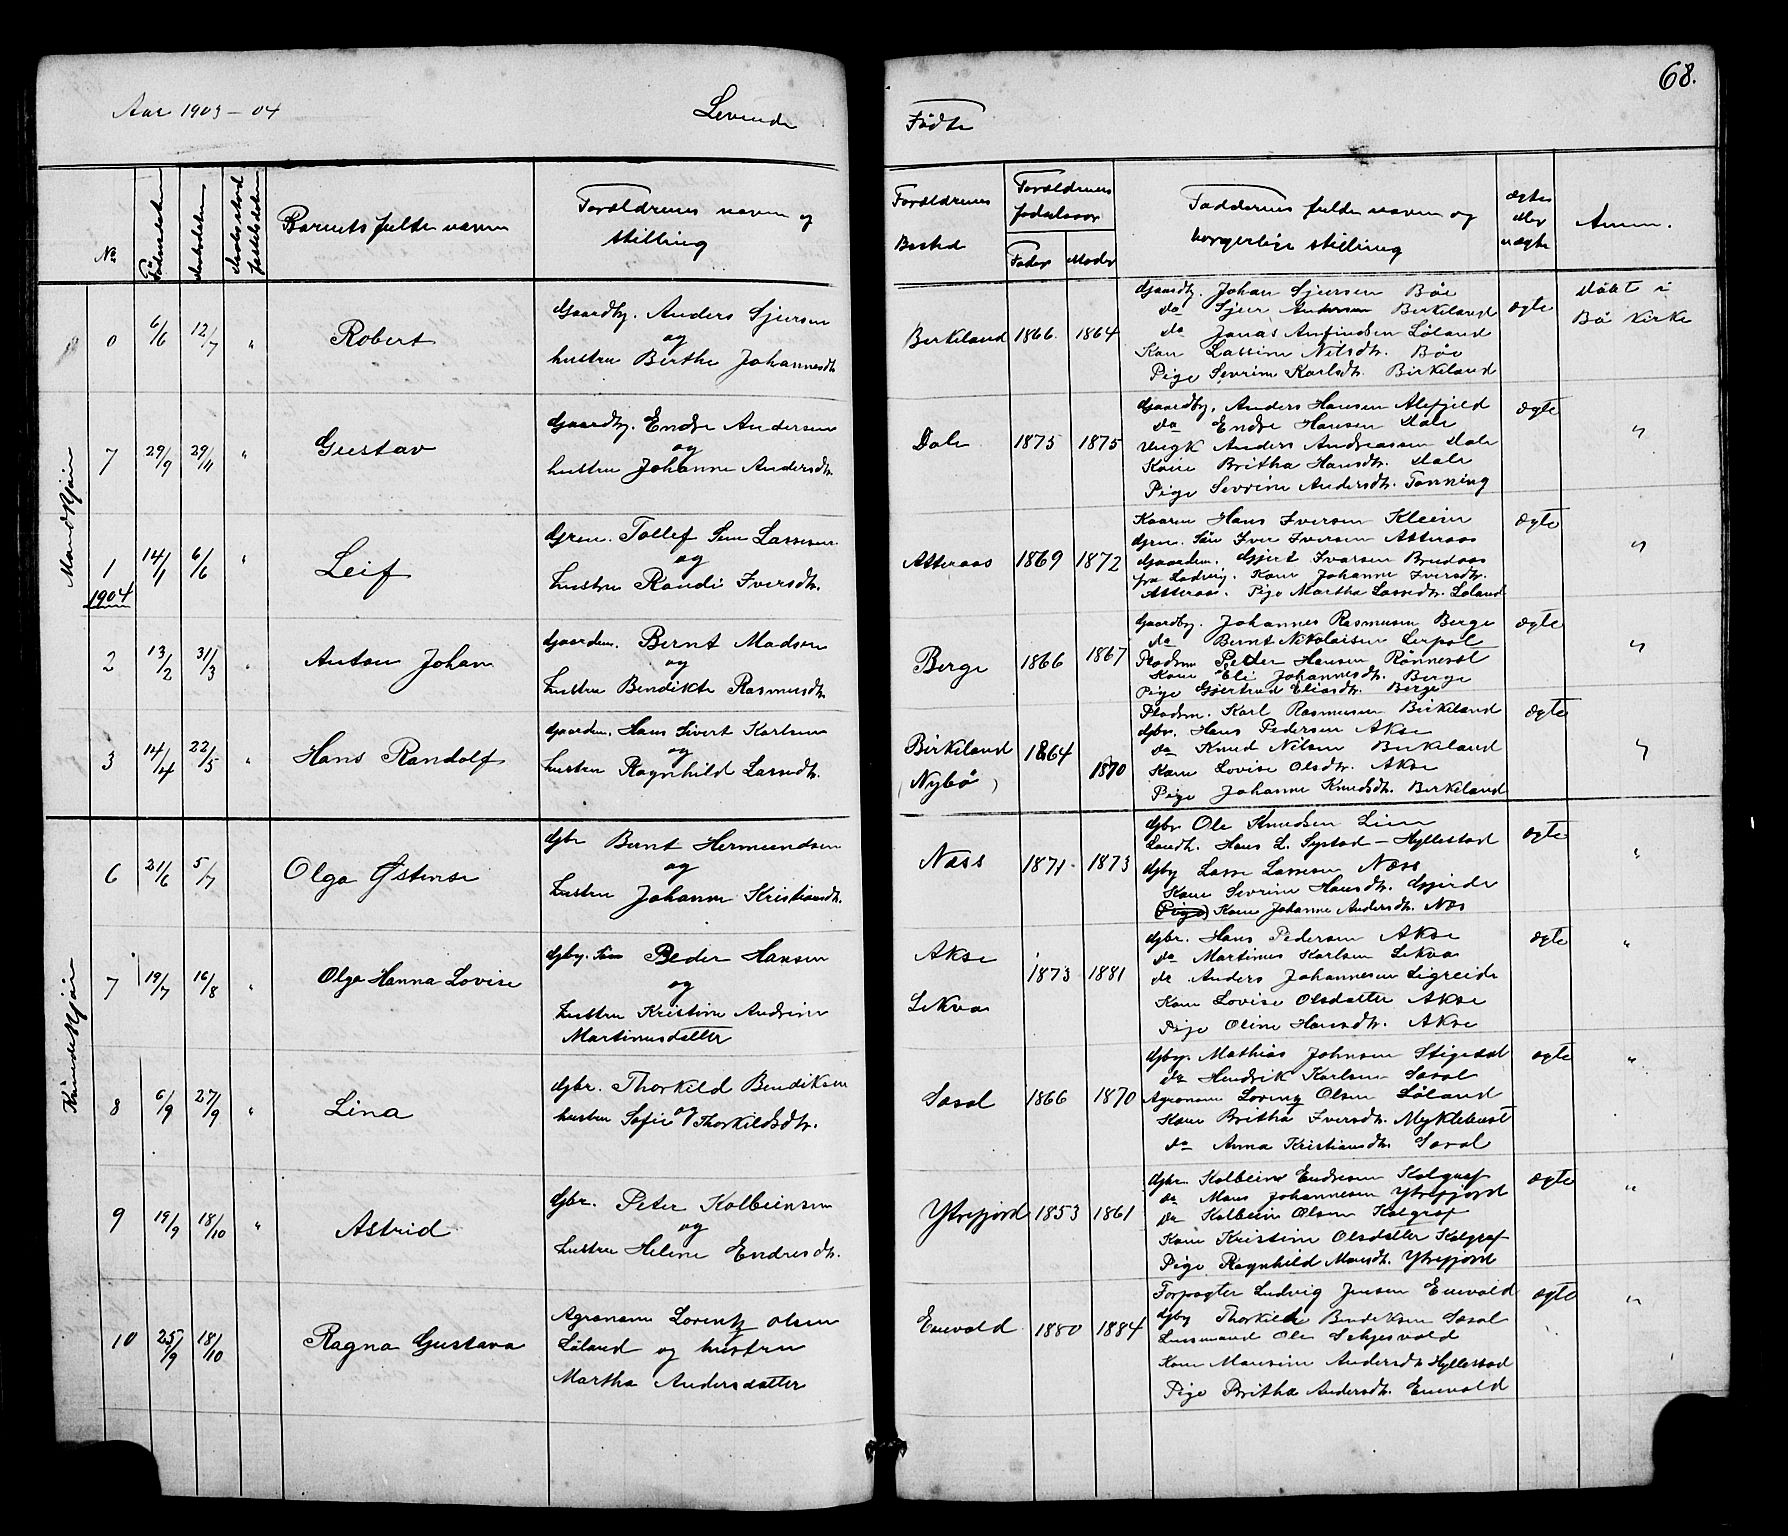 68.
Aar 1903 - 04
Levende
Fødte
No
Fødselsdatum
Daabsdatum
Barnets fulde navn
Forældrenes navn og
stilling
Forældrenes
Bosted
Forældrenes
fødselsaar
Fader
Moder
Faddernes fulde navn og
borgerlige stilling
ægte
eller
uægte
Anm.
Mandkjøn
0 6/6 12/7 "
Robert
Gaardbr. Anders Sjursen
og
hustru Berthe Johannesdtr.
Birkeland 1866. 1864
Gaardbr. Johan Sjursen Bøe
do Sjur Andersen Birkeland
do Jonas Anfindsen Løland
Kone Lassine Nilsdtr. Bøe
Pige Sevrine Karlsdtr. Birkeland
ægte
Døbt i
Bø Kirke
7 29/9 29/11 "
Gustav
Gaardbr. Endre Andersen
og
hustru Johanne Andersdtr.
Dale 1875 1875
Gaardbr. Anders Hansen Alefjeld
do Endre Hansen Dale
Ungk Anders Andreassen Dale
Kone Britha Hansdtr. Dale
Pige Sevrine Andersdtr. Tonning
ægte
"
1 14/1 6/6 "
1904
Leif
Tollef Lassesen
og
hustru Randi Iversdtr.
Atteraas 1869 1872
Hans Iversen Kleiva
Iver Iversen Atteraas
Gjert Ivarsen
fra Ladvig. Kone Johanne Iversdtr.
Atteraas. Pige Martha Lassedtr. Løland
ægte
"
2 13/2 31/3 "
Anton Johan
Gaardm. Bernt Madsen
og
hustru Bendikte Rasmusdtr.
Berge 1866 1867
Gaardbr. Johannes Rasmussen Berge
do Bernt Nikolaisen Leipol
Pladsm Peder Hansen Rønneset
Kone Eli Johannesdtr. Berge
Pige Gjertrud Eliasdtr. Berge
ægte
"
3 14/4 22/5 "
Hans Randolf
Gaardm. Hans Sivert Karlsen
og
hustru Ragnhild Lassedtr.
Birkeland 1864 1870
(Nybø)
Pladsm. Karl Rasmussen Birkeland
gbr. Hans Pedersen Akse
do Knud Nilsen Birkeland
Kone Lovise Olsdtr. Akse
Pige Johanne Knudsdtr. Birkeland
ægte
"
Kvindekjøn
6 21/6 5/7
Olga Østense
Gbr Bernt Hermundsen
og
hustru Johanne Kristiansdtr.
Næss 1871. 1873
Gbr Ole Knudsen Lien
Landh. Hans L. Systad - Hyllestad
Gbr Lasse Lassesen Næss
Kone Sevrine Hansdtr. Gjerde
(Pige) Kone Johanne Andersdtr. Næs
ægte
"
7 19/7 16/8 "
Olga Hanna Lovise
Peder Hansen
og
hustru Kristine Andrine
Martinusdatter
Akse
Lekva
1873 1881
Gbr. Hans Pedersen Akse
do Martinus Karlsen Lekva
do Anders Johannesen Ligreide
Kone Lovise Olsdatter Akse
Pige Oline Hansdtr. Akse
ægte
"
8 6/9 27/9 "
Lina
Gbr. Thorkild Bendiksen
og
hustru Sofie Thorkildsdtr.
Søsal 1866 1870
Mathias Johnsen Stigedal
do Hendrik Karlsen Søsal
Agronom Lorentz Olsen Løland
Kone Britha Iversdtr. Myklebust
do Anna Kristiansdtr. Søsal
ægte
"
9 19/9 18/10 "
Astrid
Gbr. Peter Kolbeinsen
og
hustru Helene Endresdtr.
Ytrefjord 1853 1861
Gbr. Kolbein Endresen Kolgraf
do Mons Johannesen Ytrefjord
do Kolbein Olsen Kolgraf
Kone Kristine Olsdatter Kolgraf
Pige Ragnhild Monsdtr. Ytrefjord
ægte
"
10 25/9 18/10
Ragna Gustava
Agronom Lorentz Olsen
Løland og hustru
Martha Andersdatter
Enevold 1880 1884
Forpagter Ludvig Jensen Enevold
Gbr Thorkild Bendiksen Søsal
Lensmand Ole
Kone Monsine Andersdtr Hyllestad
Pige Britha Andersdtr. Enevold
ægte
"